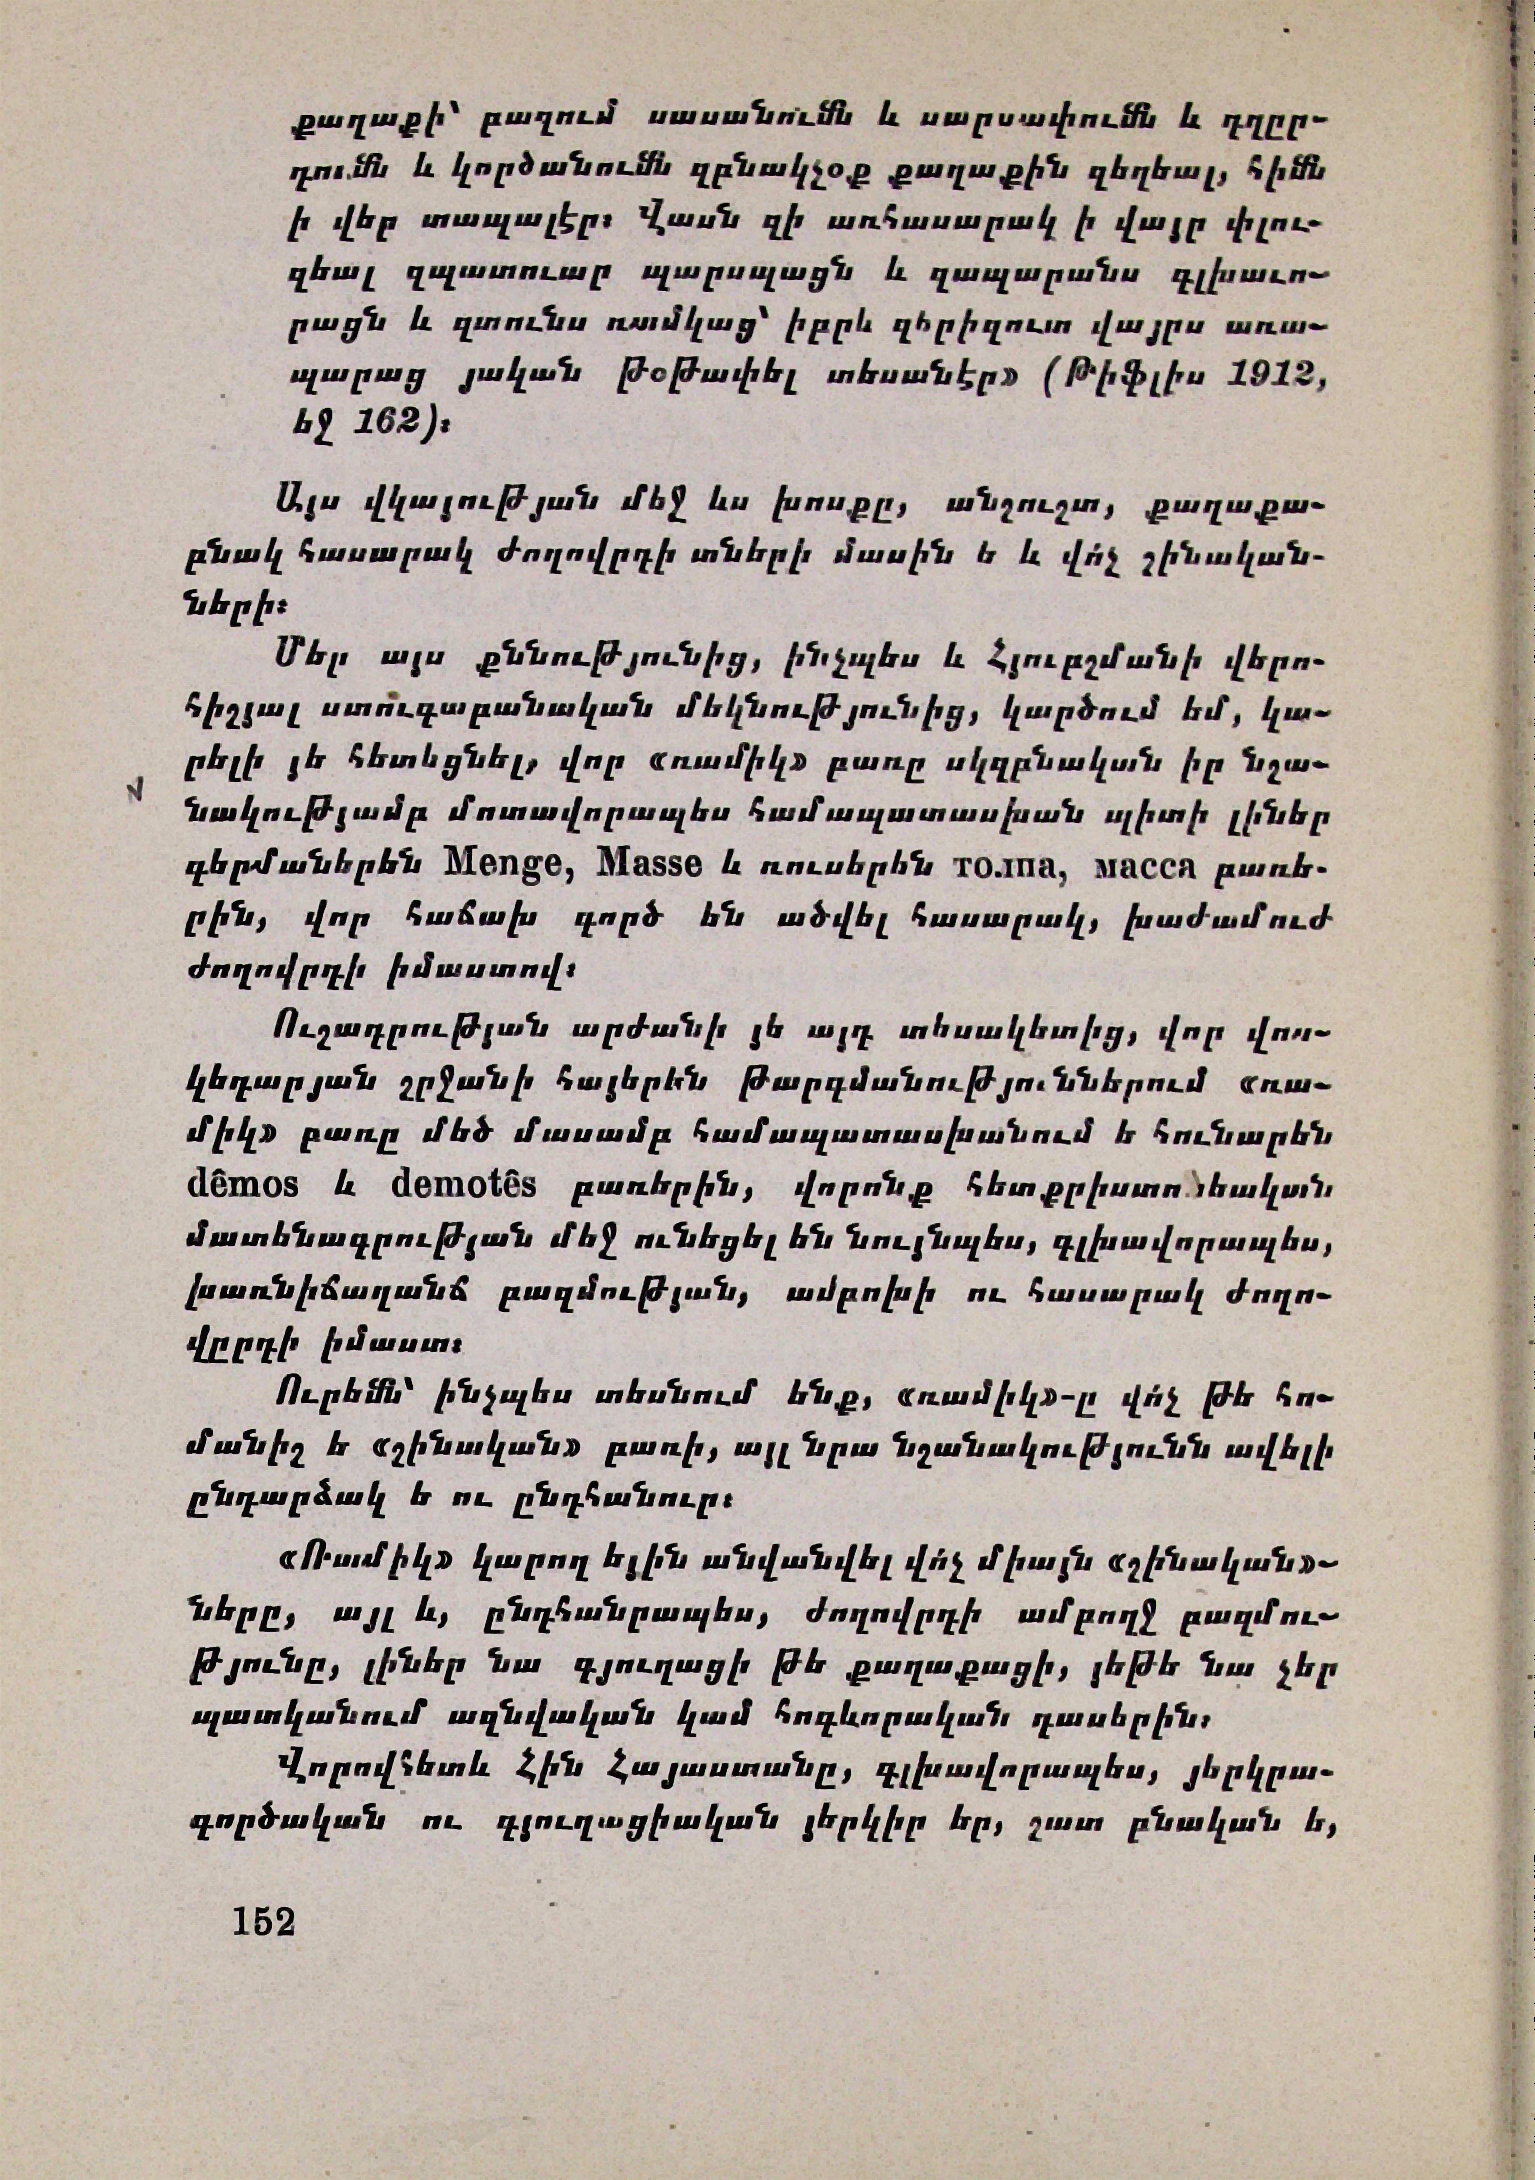 քաղաքի՝ բազում սասանումն և սարսափումն և դղըր-
դումն և կործանումն զբնակչօք քաղաքին զեղեալ, հիմն
ի վեր տապալէր։ Վասն զի առհասարակ ի վայր փլու-
զեալ զպատուար պարսպացն և զապարանս գլխաւո-
րացն և զտունս ռամկաց՝ իբրև զհրիզուտ վայրս առա-
պարաց յական թօթափել տեսանէր» (Թիֆլիս 1912,
եջ 162)։
Այս վկայության մեջ ևս խոսքը, անշուշտ, քաղաքա-
բնակ հասարակ ժողովրդի տների մասին ե և վո՛չ շինական-
ների։
Մեր այս քննությունից, ինչպես և Հյուբշմանի վերո-
հիշյալ ստուգաբանական մեկնությունից, կարծում եմ, կա-
րելի յե հետևցնել, վոր «ռամիկ» բառը սկզբնական իր նշա-
նակությամբ մոտավորապես համապատասխան պիտի լիներ
գերմաներեն Menge, Masse և ռուսերեն толпа, масса բառե-
րին, վոր հաճախ գործ են ածվել հասարակ, խաժամուժ
ժողովրդի իմաստով։
Ուշադրության արժանի յե այդ տեսակետից, վոր վոս-
կեդարյան շրջանի հայերեն թարգմանություններում «ռա-
միկ» բառը մեծ մասամբ համապատասխանում ե հունարեն
dêmos և demotês բառերին, վորոնք հետքրիստոնեական
մատենագրության մեջ ունեցել են նույնպես, գլխավորապես,
խառնիճաղանճ բազմության, ամբոխի ու հասարակ ժողո-
վըրդի իմաստ։
Ուրեմն՝ ինչպես տեսնում ենք, «ռամիկ»-ը վո՛չ թե հո-
մանիշ ե «շինական» բառի, այլ նրա նշանակությունն ավելի
ընդարձակ ե ու ընդհանուր։
«Ռամիկ» կարող եյին անվանվել վո՛չ միայն «շինական»-
ները, այլ և, ընդհանրապես, ժողովրդի ամբողջ բազմու-
թյունը, լիներ նա գյուղացի թե քաղաքացի, յեթե նա չեր
պատկանում ազնվական կամ հոգևորական դասերին։
Վորովհետև Հին Հայաստանը, գլխավորապես, յերկրա-
գործական ու գյուղացիական յերկիր եր, շատ բնական ե,
152